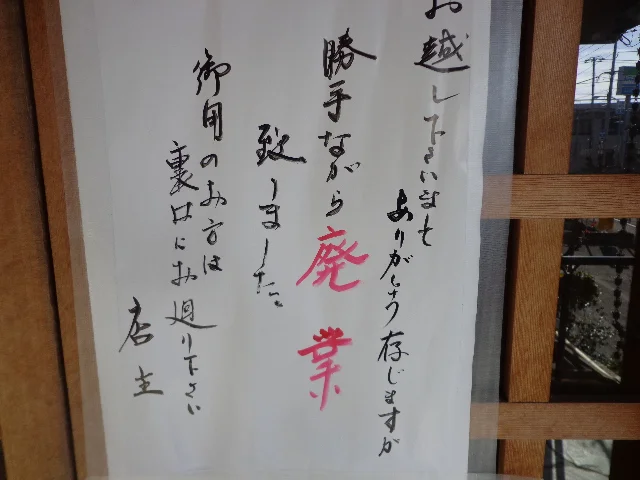 お越し下さいまして
ありがとう存じますが
勝手ながら廃業
致しました
御用のお方は
裏口にお廻り下さい
店主